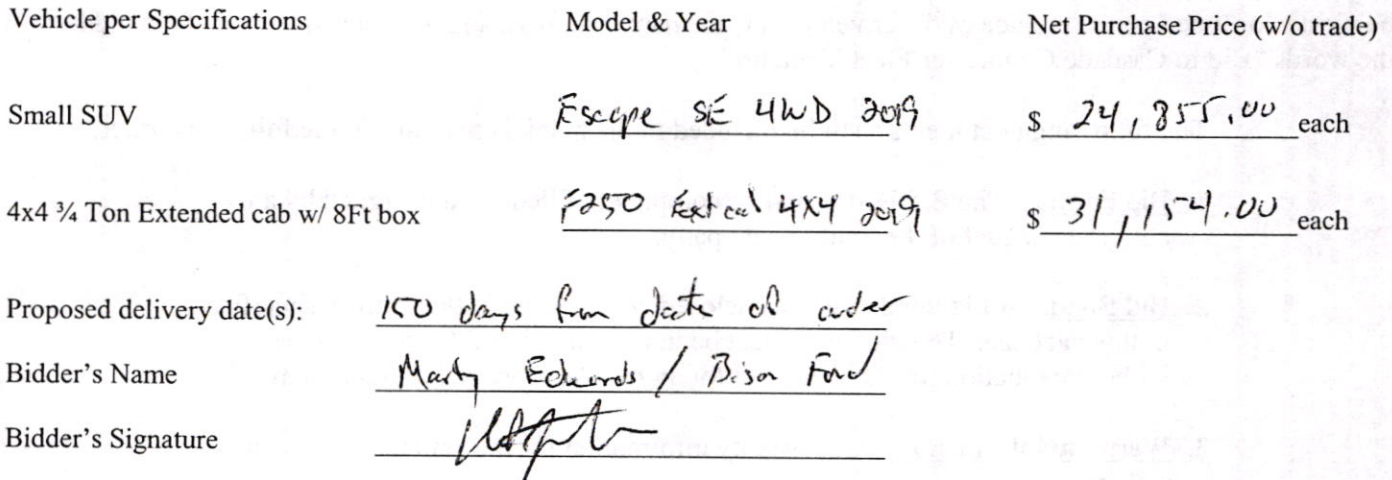 Vehicle per Specifications Model & Year Net Purchase Price (w/o trade)
Small SUV Escape SE 4WD 2019 $ 24,855.00 each
4x4 ¾ Ton Extended cab w/ 8Ft box F250 Ext cab 4X4 2019 $ 31,154.00 each
Proposed delivery date(s): 150 days from date of order
Bidder's Name Marty Edwards / Bison Ford
Bidder's Signature